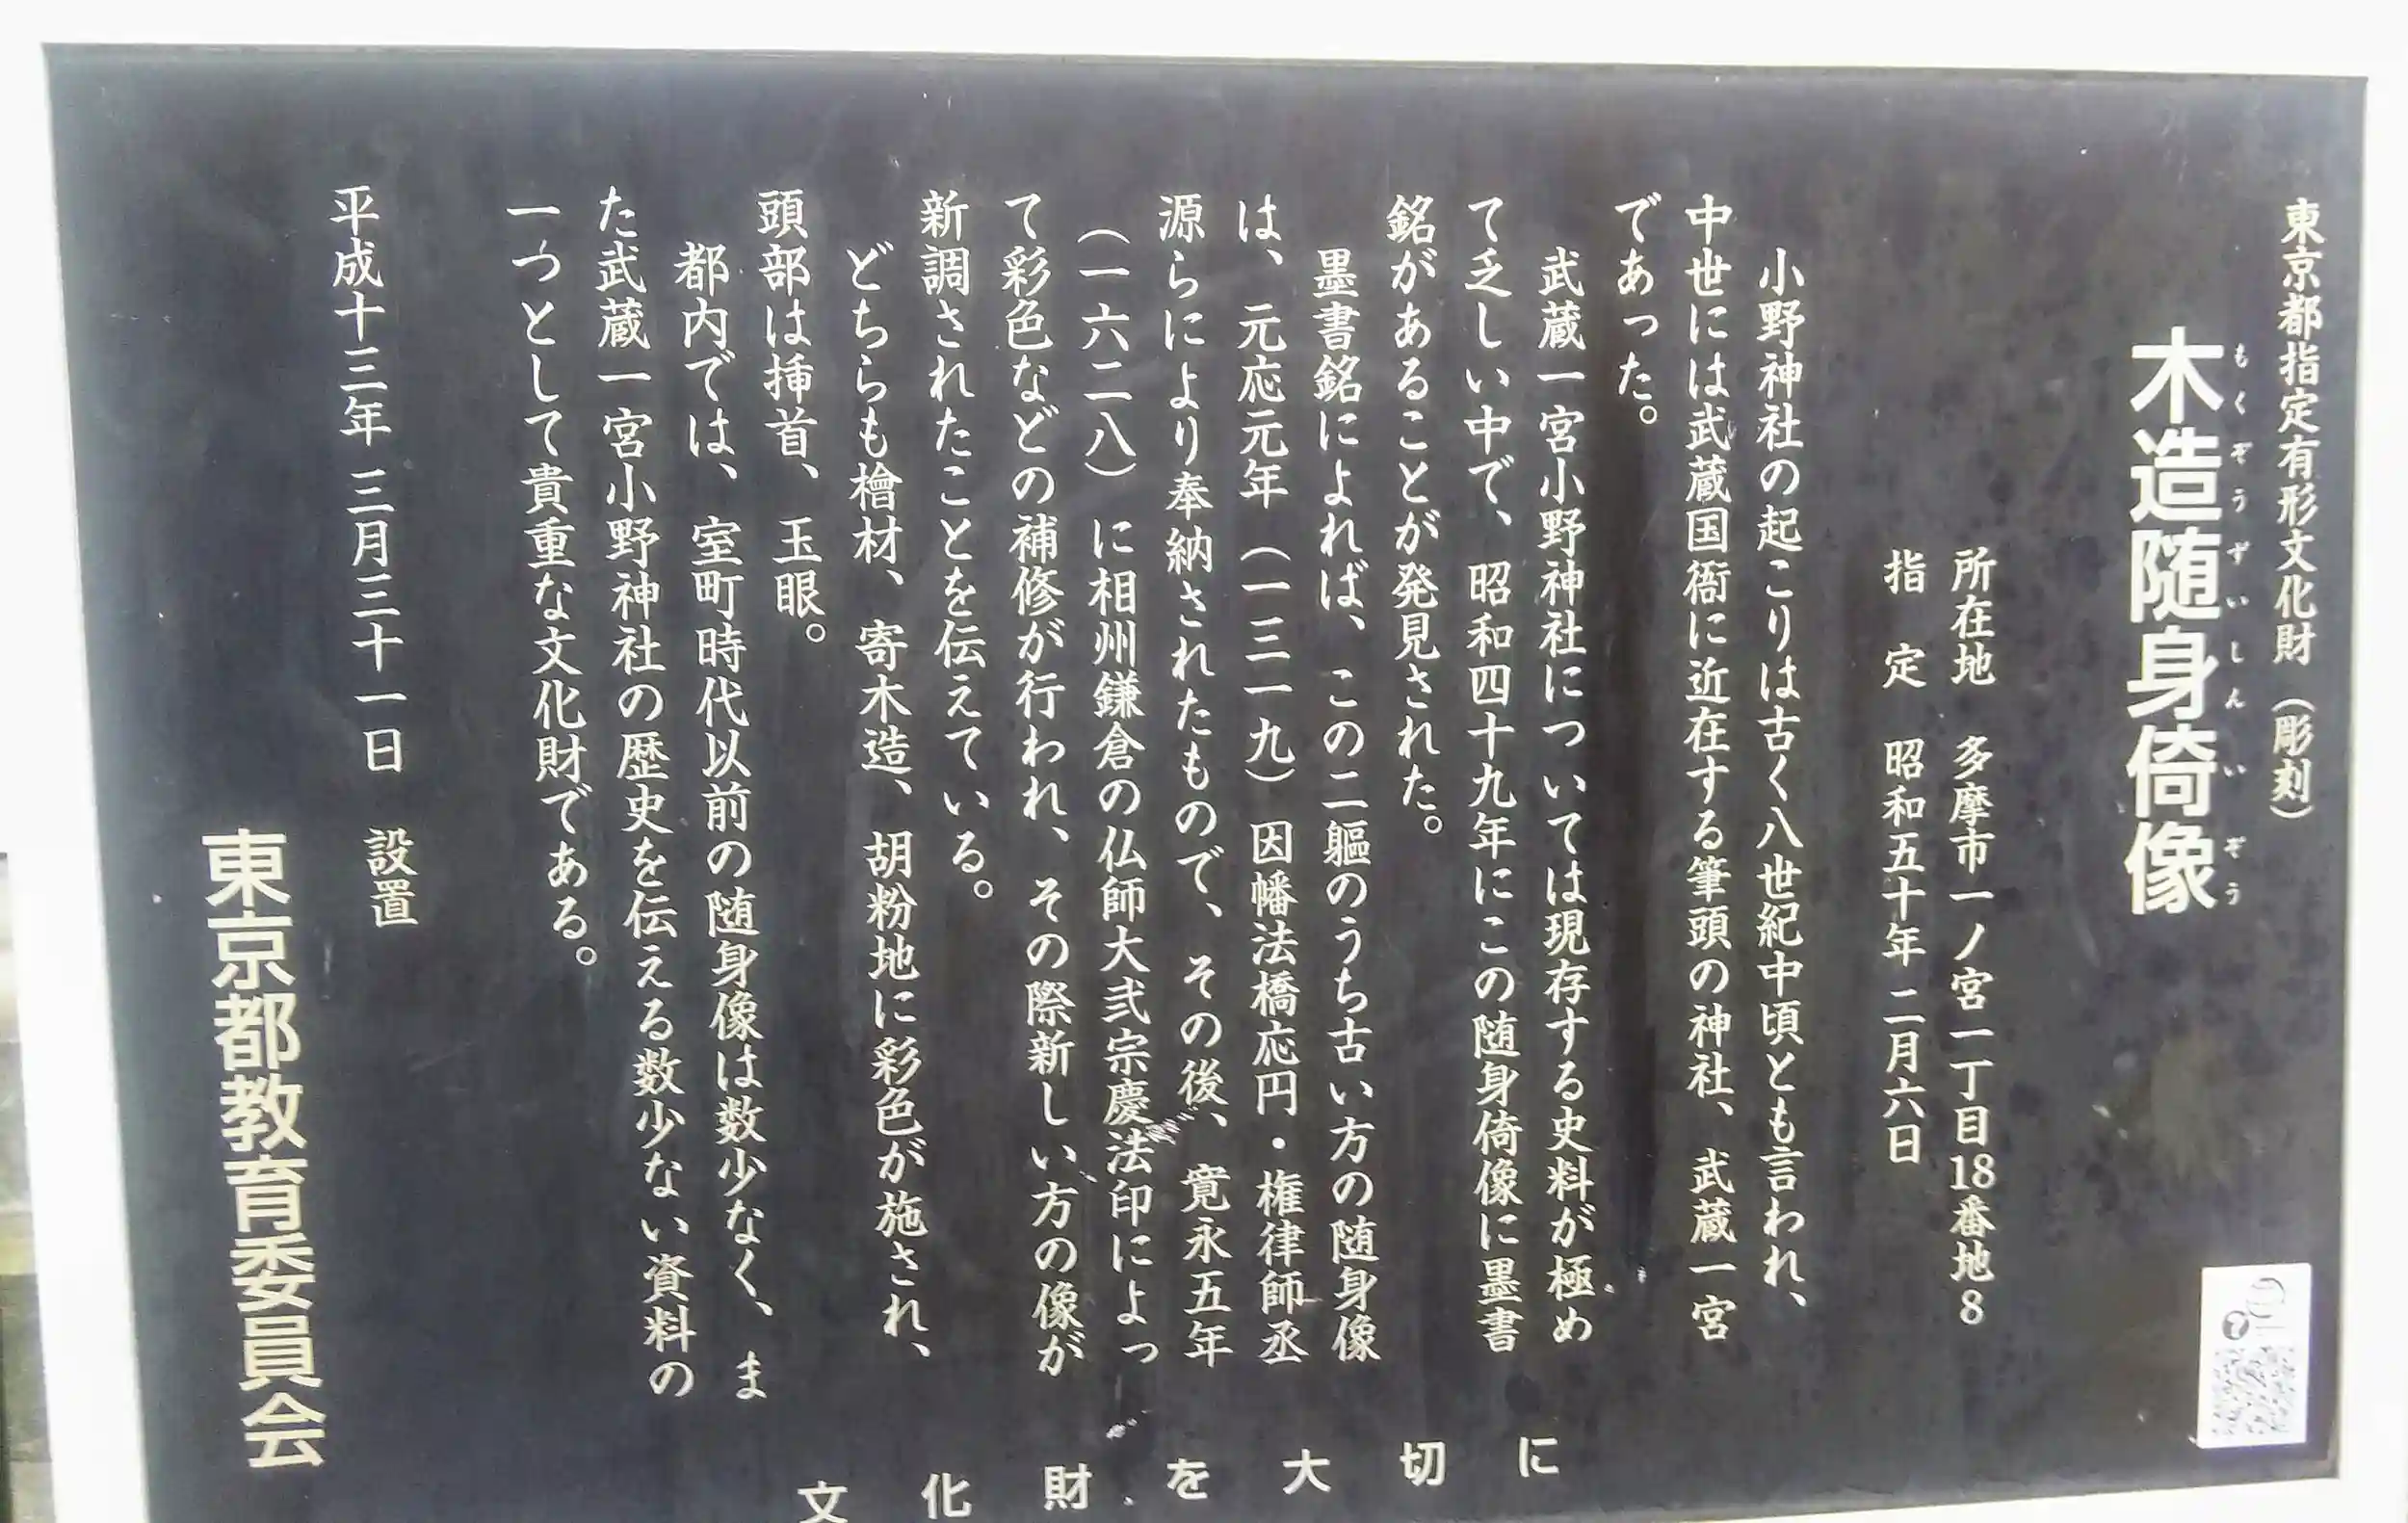 東京都指定有形文化財（彫刻）
もくぞうずいしんいぞう
木造随身倚像
所在地　多摩市一ノ宮一丁目18番地8
指　定　昭和五十年 二月六日
小野神社の起こりは古く八世紀中頃とも言われ、
中世には武蔵国衙に近在する筆頭の神社、武蔵一宮
であった。
武蔵一宮小野神社については現存する史料が極め
て乏しい中で、昭和四十九年にこの随身倚像に墨書
銘があることが発見された。
墨書銘によれば、この二軀のうち古い方の随身像
は、元応元年（一三一九）因幡法橋応円・権律師丞
源らにより奉納されたもので、その後、寛永五年
（一六二八）に相州鎌倉の仏師大弐宗慶法印によっ
て彩色などの補修が行われ、その際新しい方の像が
新調されたことを伝えている。
どちらも檜材、寄木造、胡粉地に彩色が施され、
頭部は挿首、玉眼。
都内では、室町時代以前の随身像は数少なく、ま
た武蔵一宮小野神社の歴史を伝える数少ない資料の
一つとして貴重な文化財である。
平成十三年 三月三十一日　設置
東京都教育委員会
文化財を大切に